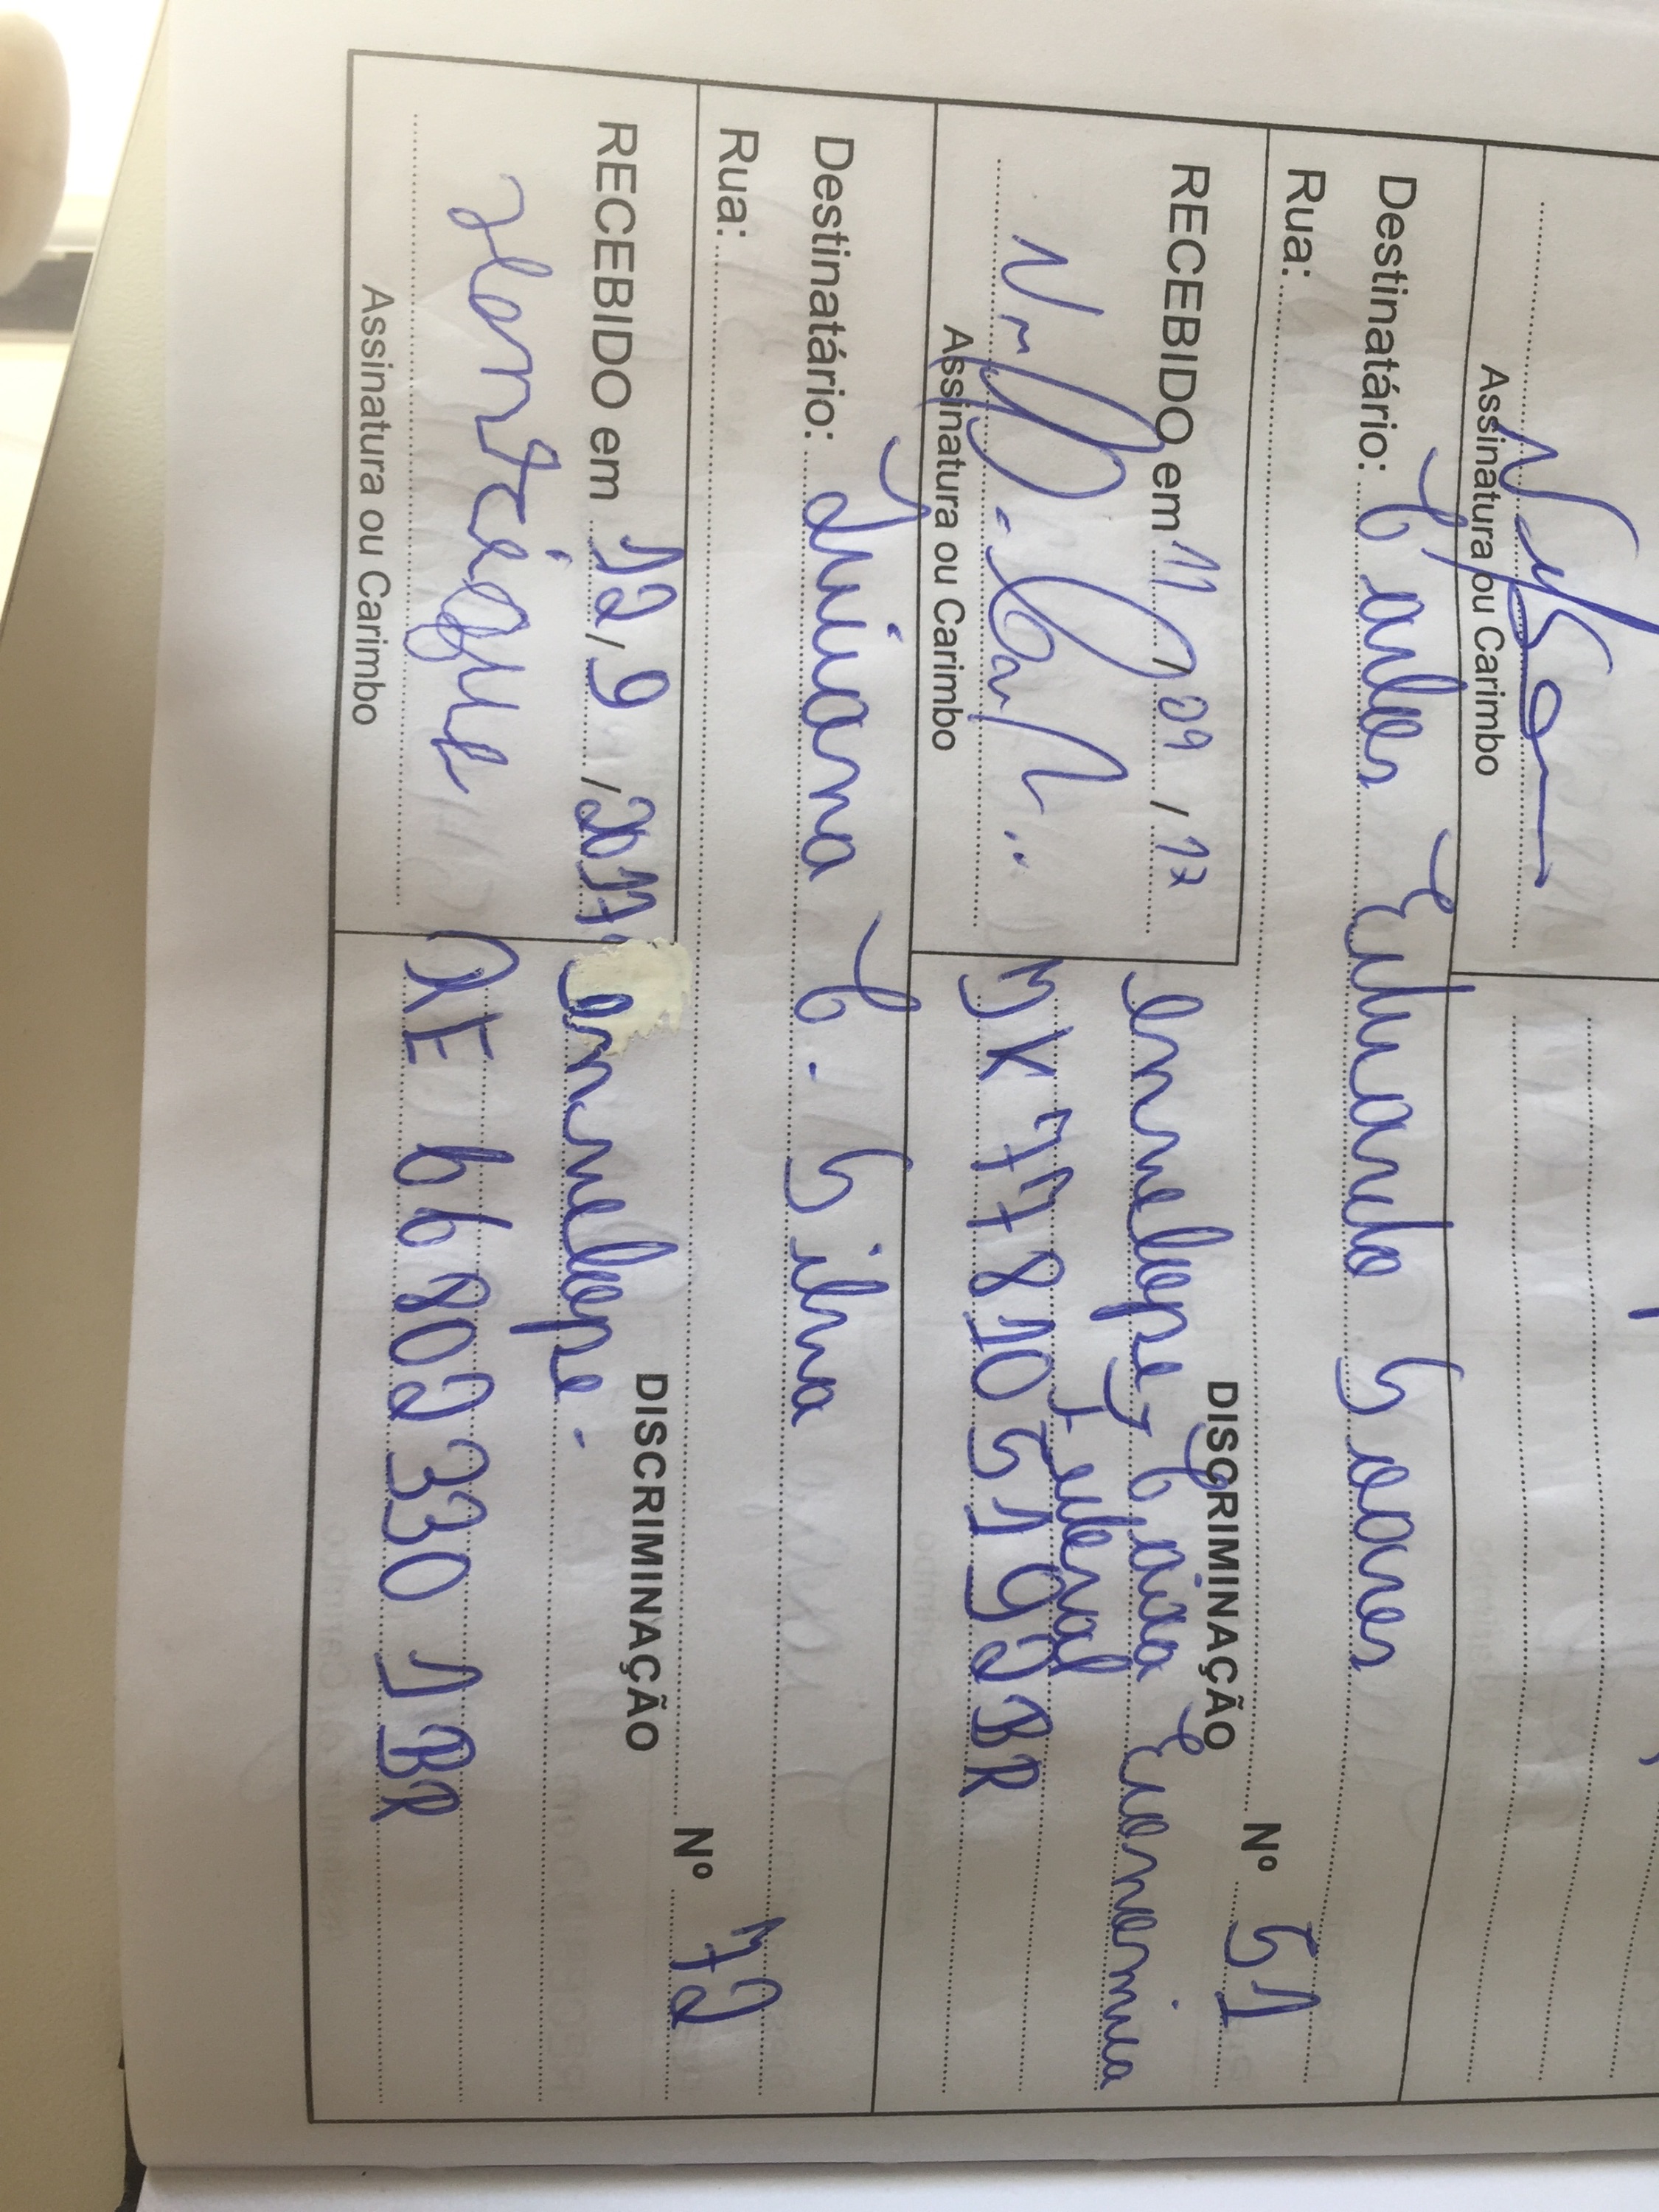 Assinatura ou Carimbo
Destinatário: Carlos Eduardo Soares
Rua:
Nº 51
RECEBIDO em 11 / 09 / 17
DISCRIMINAÇÃO
envelope, Caixa Economica
Federal
JK 778105199BR
Assinatura ou Carimbo
Destinatário: Luciana C. Silva
Rua:
Nº 72
RECEBIDO em 12 / 9 / 2017
DISCRIMINAÇÃO
envelope.
Henrique
RE 668023301BR
Assinatura ou Carimbo